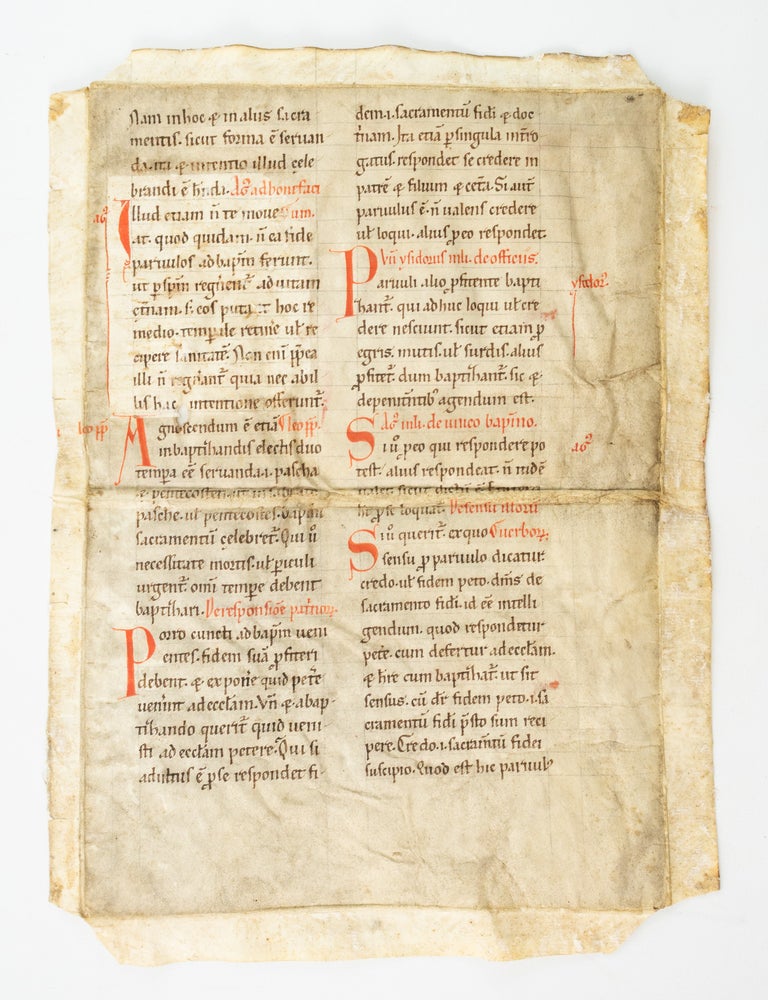 Nam in hoc & in aliis sacra
mentis. sicut forma ē servan
da. ita & intentio illud cele
brandi ē hñda. Aḡ. ad bonifaci
um.
Illud etiam ñ te move
at. quod quidam. ñ ea fide
parvulos ad bapm̄ ferunt.
ut p spm̄ regn̄ent̄ ad vitam
et̄nam. s; eos putant hoc re
medio. temp̄ale retin̄e ul̄ re
cipere sanitatē. Non eni ppea
illi ñ regn̄ant̄ quia nec ab il
lis hac intentione offerunt̄.
Agnoscendum ē etiā Leo pp̄.
in baptiz̄andis electis duo
tempa eē servanda .i. pascha
& pentecosten. ut in sabbato
pasche. ul̄ pentecostes. baptm̄i
sacramentū celebret̄. Qui ū
necessitate mortis. ul̄ piculi
urgent̄. omi tempe debent
baptiz̄ari. De responsiōe pat̄nor̄.
Porro cuncti ad bapm̄ veni
entes. fidem suā pfiteri
debent. & expon̄e quid pet̄e
veniunt ad eccl̄am. Vn̄ & a bap
tiz̄ando querit̄ quid veni
sti ad eccl̄am petere. Qui si
adultus ē p se respondet fi
dem .i. sacramentū fidi & doc
t̄nam. Ita etiā p singula int̄ro
gatus. respondet se credere in
patrē & filium & cet̄a. Si aut̄
parvulus ē. ñ valens credere
ul̄ loqui. alius p eo respondet.
Vn̄ ysidorus in li. de officiis.
Parvuli alio pfitente bapti
z̄ant̄. qui adhuc loqui ul̄ cre
dere nesciunt. sicut etiam p
egris. mutis. ul̄ surdis. alius
pfitet̄. dum baptiz̄ant̄. sic &
de penitentib; agendum est.
Aḡ. in li. de unico bapm̄o.
Si ū p eo qui respondere po
test. alius respondeat. ñ inde
valet. sicut dictū ē
p se loquat̄. De sensu illorū
verbor̄.
Si ū querit̄. ex quo
sensu p parvulo dicatur
credo. ul̄ fidem peto. dm̄s de
sacramento fidi. id eē intelli
gendum. quod respondetur
pet̄e. cum defertur ad eccl̄am.
& hr̄e cum baptiz̄at̄. ut sit
sensus. cū dr̄ fidem peto .i. sa
cramentū fidi p̄sto sum reci
pere. Credo .i. sacram̄tū fidei
suscipio. Quod est hic parvul;
aḡ
leo pp̄.
ysidor̄.
aḡ